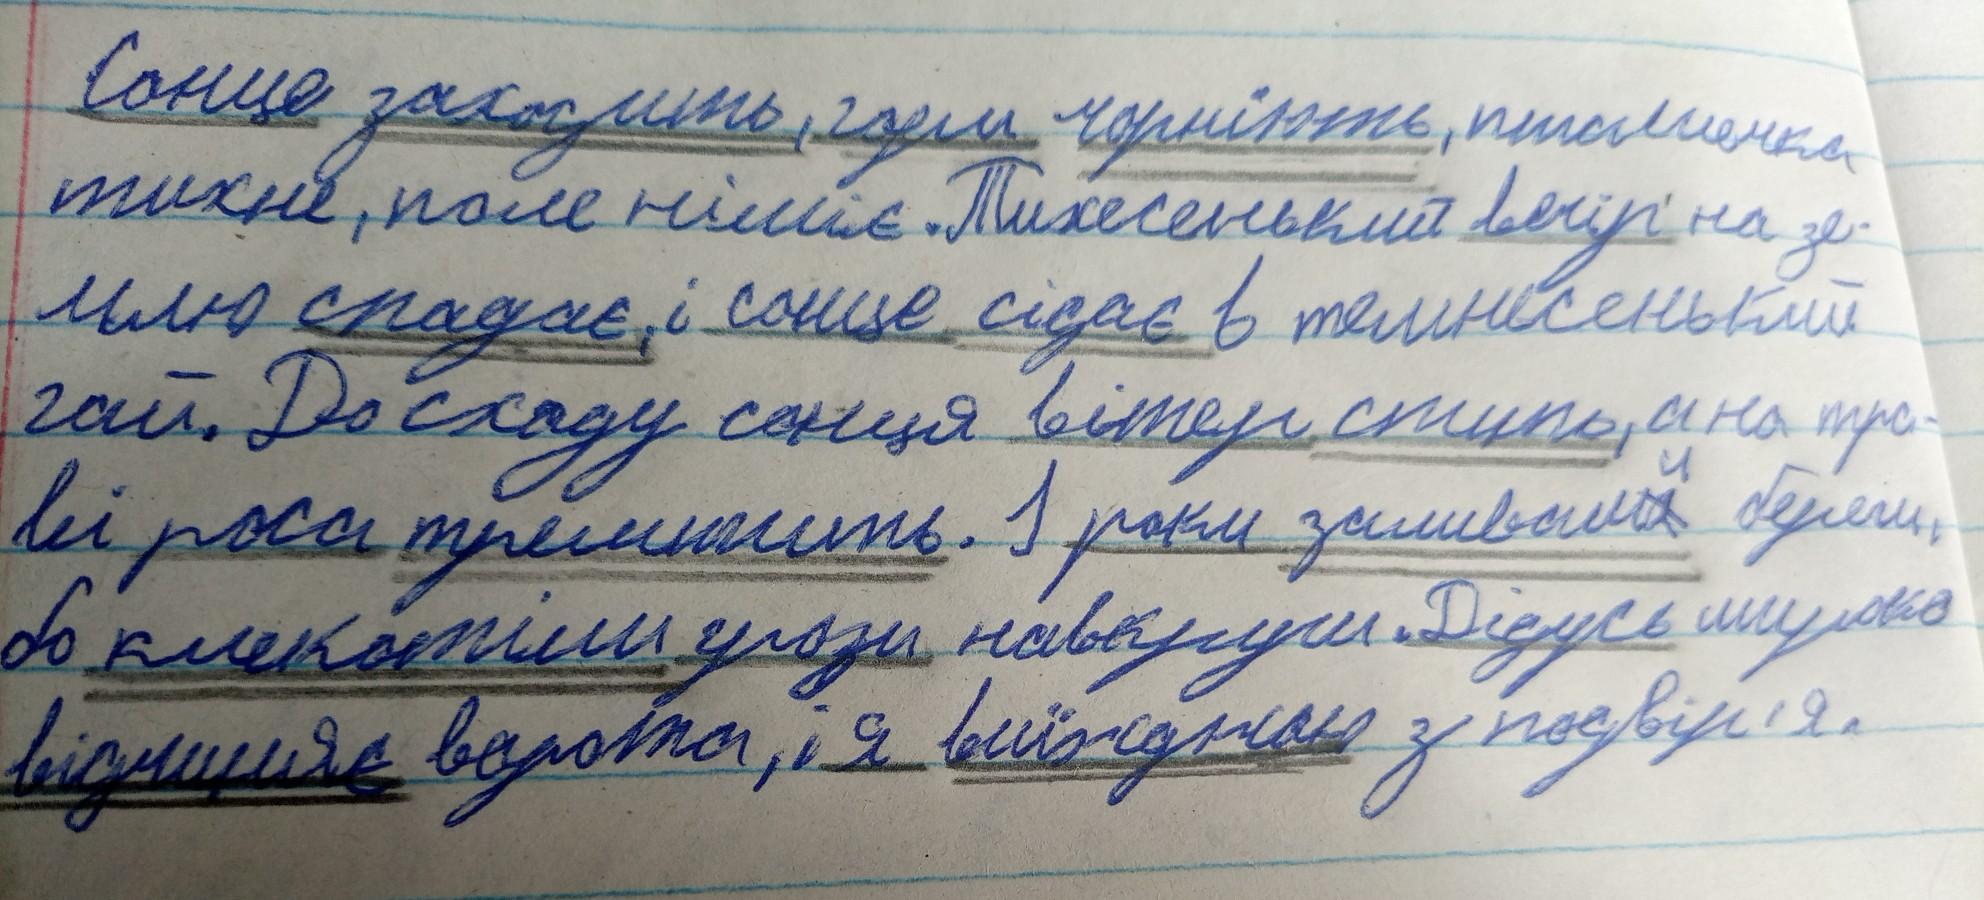 Сонце заходить, гори чорніють, пташечка
тихне, поле німіє. Тихесенький вечір на зе-
млю спадає, і сонце сідає в темнесенький
гай. До сходу сонця вітер спить, а на тра-
ві роса тремтить. І роки заливали береги,
бо клекотіли грози навкруги. Дідусь широко
відчиняє ворота, і я виїжджаю з подвір'я.